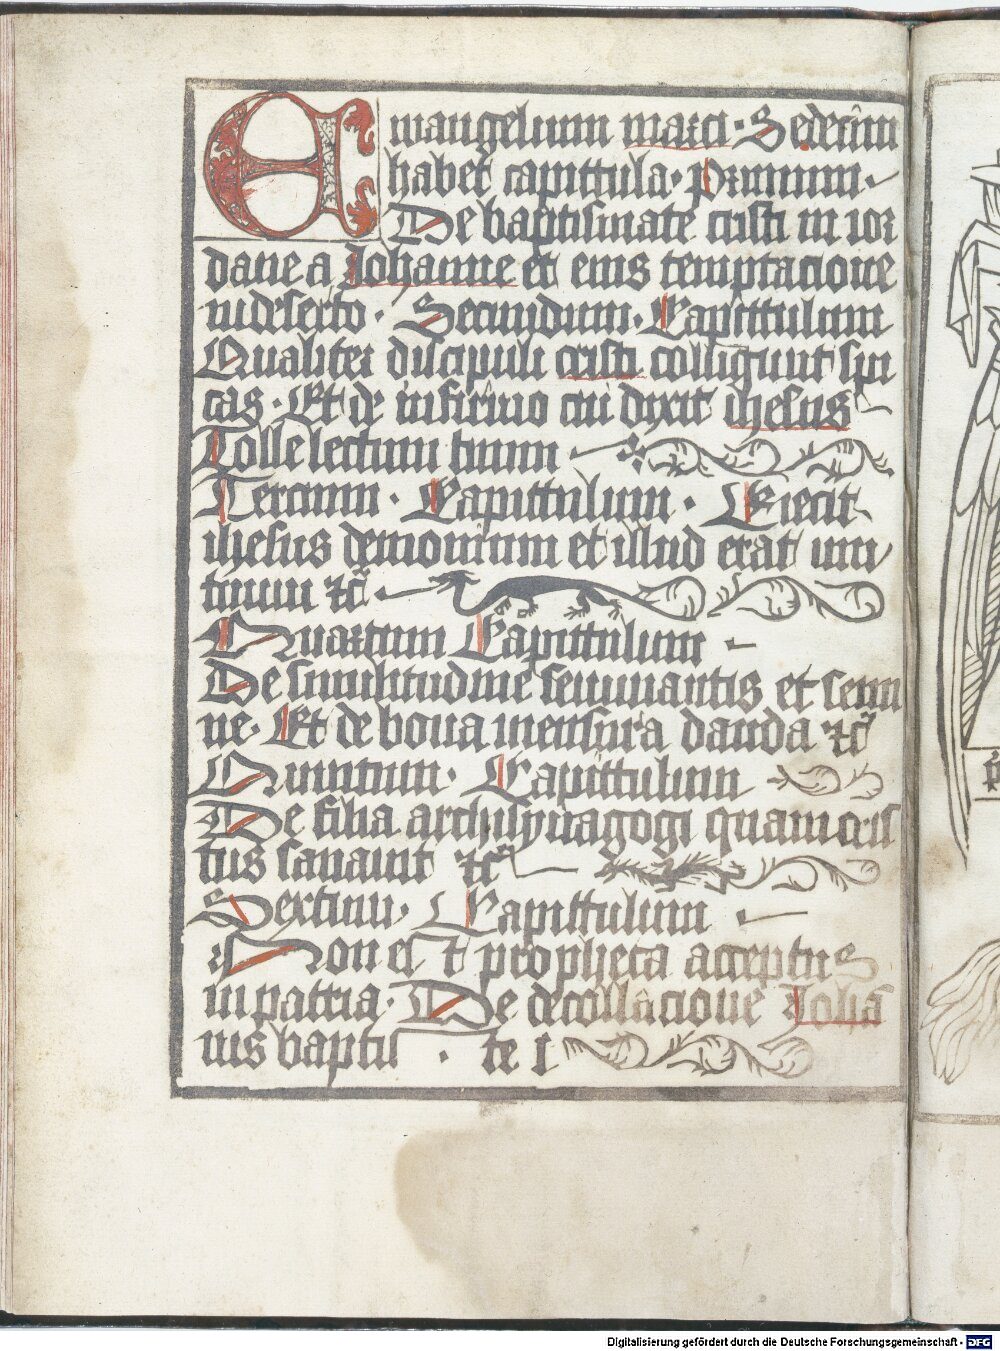 Ewangelium marci · Sedecim
habet capittula · Primum ·
De baptismate cristi in ior
dane a Johanne et eius temptacione
in deserto · Secundum · Capittulum
Qualiter discipuli cristi colligunt spi
cas · Et de infirmo cui dixit ihesus
Tolle lectum tuum
Tercium · Capittulum · Eiecit
ihesus demonium et illud erat
Quartum Capittulum
De similitudine seminantis et semi
ne · Et de bona mensura danda ⁊c̃
Quintum · Capittulum
De filia archisynagogi quam cris
tus sanauit ⁊c̃
Sextum · Capittulum
Non est propheta acceptus
in patria · De decollâcione Johã
nis baptis · te
Digitalisierung gefördert durch die Deutsche Forschungsgemeinschaft - DFG